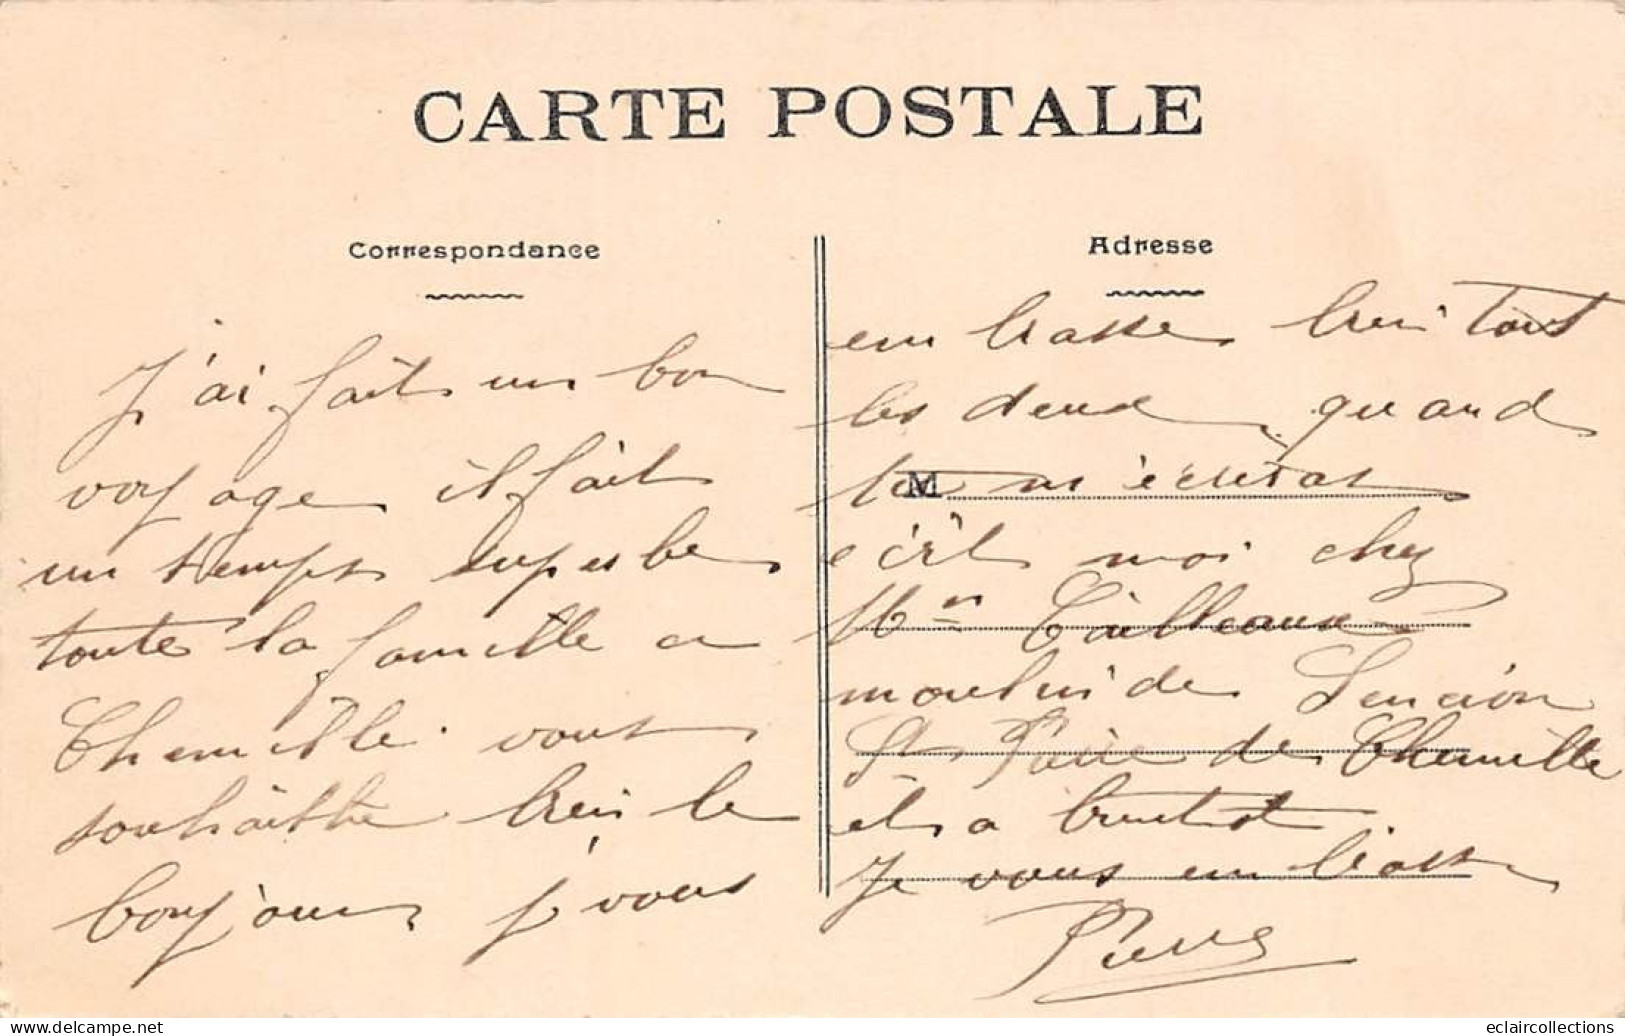 CARTE POSTALE
Correspondance
J'ai fait un bon
voyage il fait
un temps superbe
toute la famille a
Chemillé vous
souhaitte bien le
bonjour je vous
Adresse
embrasse bien tous
les deux quand
tu m'écriras
M
écrit moi chez
Mr Tailleaux
moulin de
St Pierre de Chemillé
et a bientot
Je vous embrasse
Pierre
delcampe.net
eclaircollections